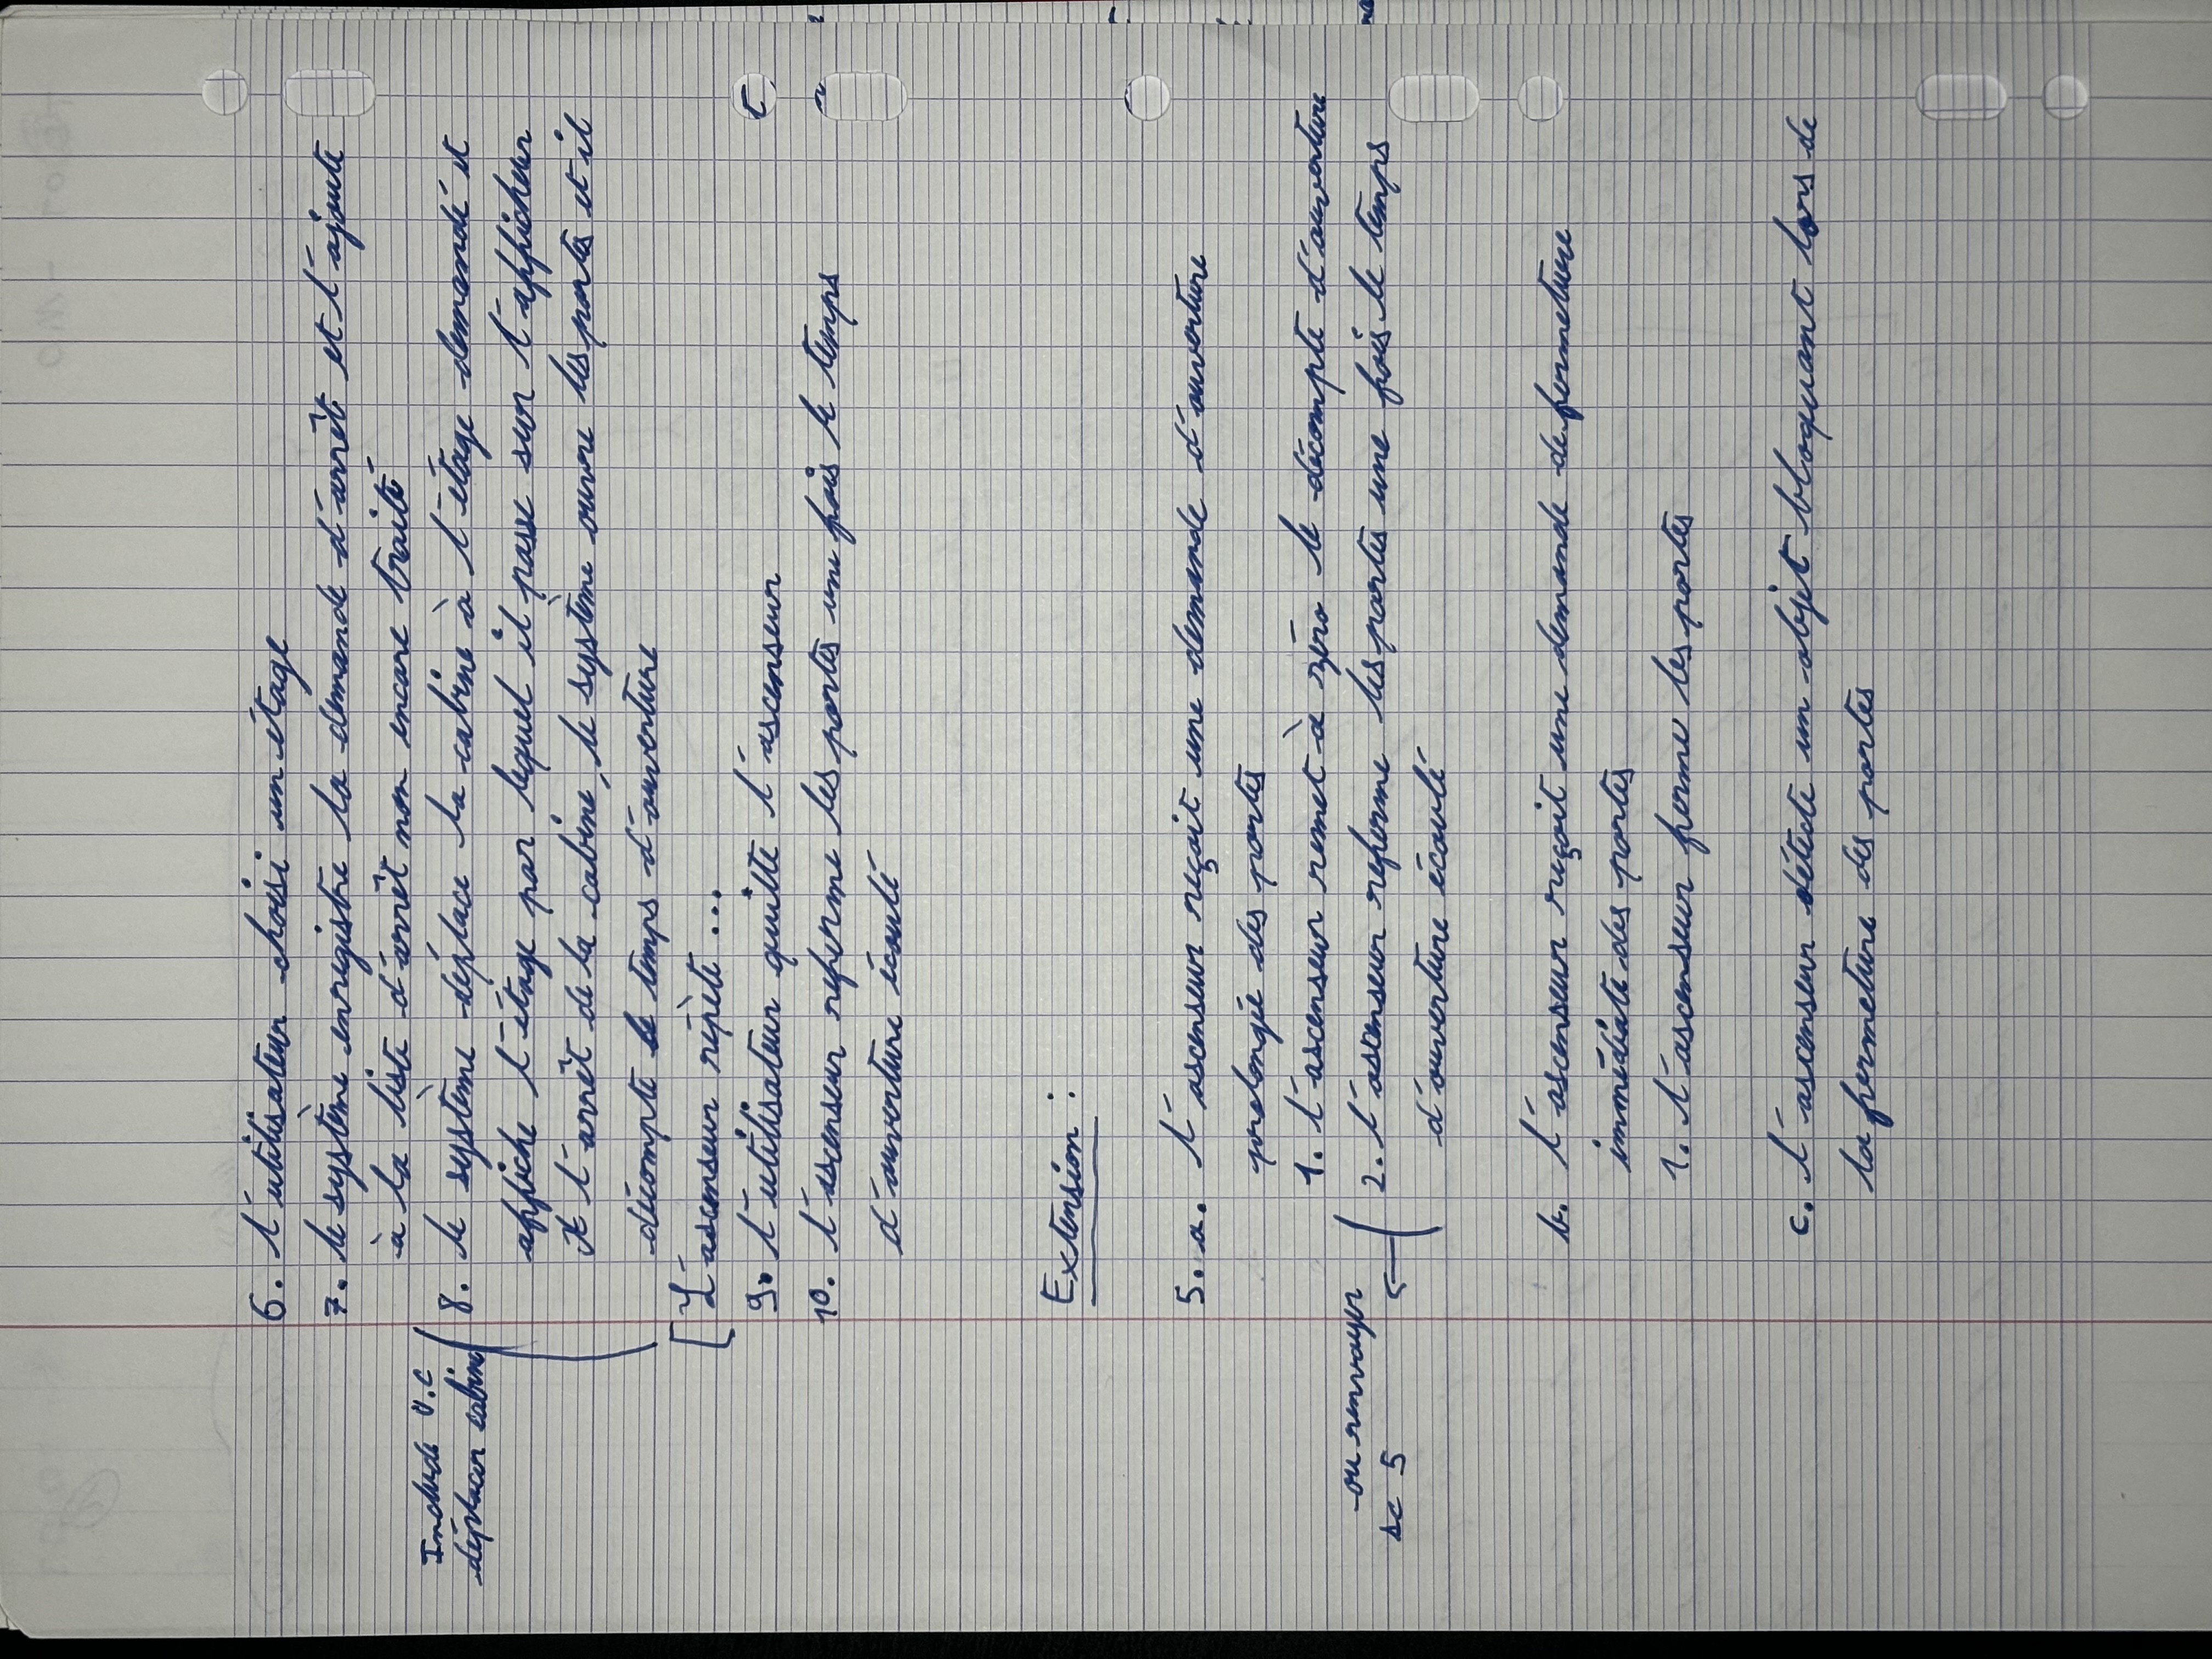 6. l'utilisateur choisi un étage
7. le système enregistre la demande d'arrêt et l'ajoute
à la liste d'arrêt non encore traité
Include U.C
déplacer cabine
8. le système déplace la cabine à l'étage demandé et
affiche l'étage par lequel il passe sur l'afficheur
A l'arrêt de la cabine, le système ouvre les portes et il
décompte le temps d'ouverture
[L'ascenseur répète ...
9. l'utilisateur quitte l'ascenseur
10. l'ascenseur referme les portes une fois le temps
d'ouverture écoulé
Extension :
5. a. l'ascenseur reçoit une demande d'ouverture
prolongée des portes
1. l'ascenseur remet à zéro le décompte d'ouverture
ou renvoyer
sc 5
2. l'ascenseur referme les portes une fois le temps
d'ouverture écoulé
b. l'ascenseur reçoit une demande de fermeture
immédiate des portes
1. l'ascenseur ferme les portes
c. l'ascenseur détecte un objet bloquant lors de
la fermeture des portes